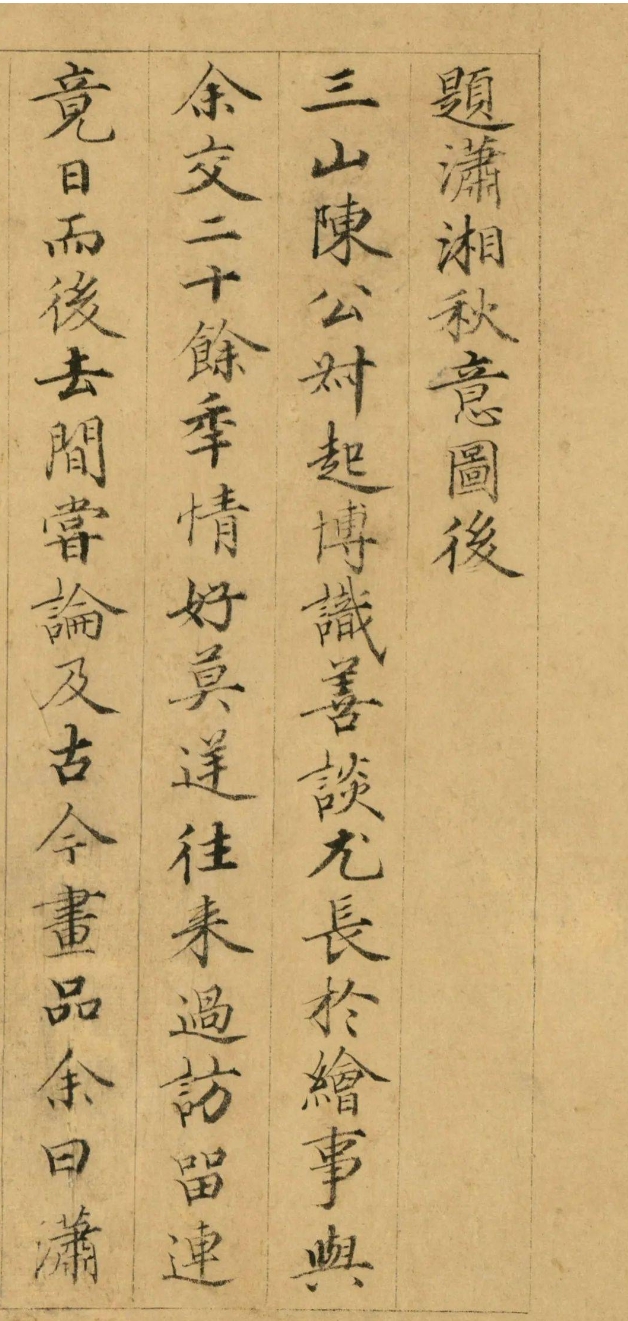 題瀟湘秋意圖後
三山陳公尌起博識善談尤長於繪事與
余交二十餘季情好莫逆往来過訪留連
竟日而後去間嘗論及古今畫品余曰瀟